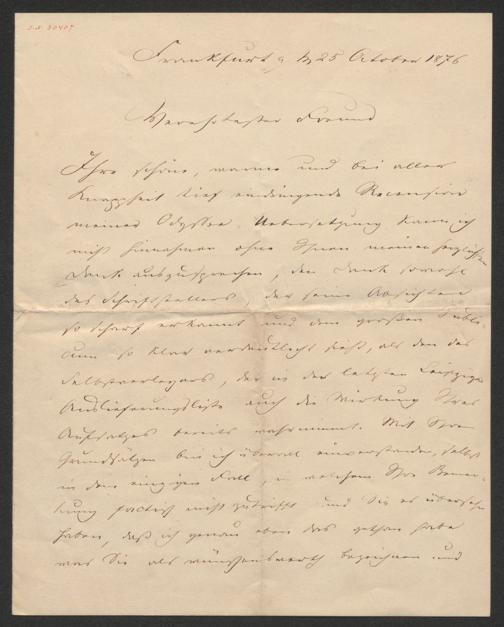 I.N. 30407
Frankfurt a M 25 October 1876
Verehrtester Freund
Ihre schöne, warme und bei aller
Knappheit tief eindringende Recension
meiner Odyssee-Uebersetzung kann ich
nicht hinnehmen ohne Ihnen meinen herzlichsten
Dank auszusprechen, den Dank sowohl
des Schriftstellers, der seine Absichten
so scharf erkannt und dem großen Publi-
cum so klar verdeutlicht sieht, als den des
Selbstverlegers, der in der letzten Leipziger
Auslieferungsliste auch die Wirkung Ihres
Aufsatzes bereits wahrnimmt. Mit Ihren
Grundsätzen bin ich überall einverstanden, selbst
in dem einzigen Fall, in welchem Ihre Bemer-
kung factisch nicht zutrifft und Sie es übersehen
haben, daß ich genau eben das gethan habe
was Sie als wünschenswerth bezeichnen und